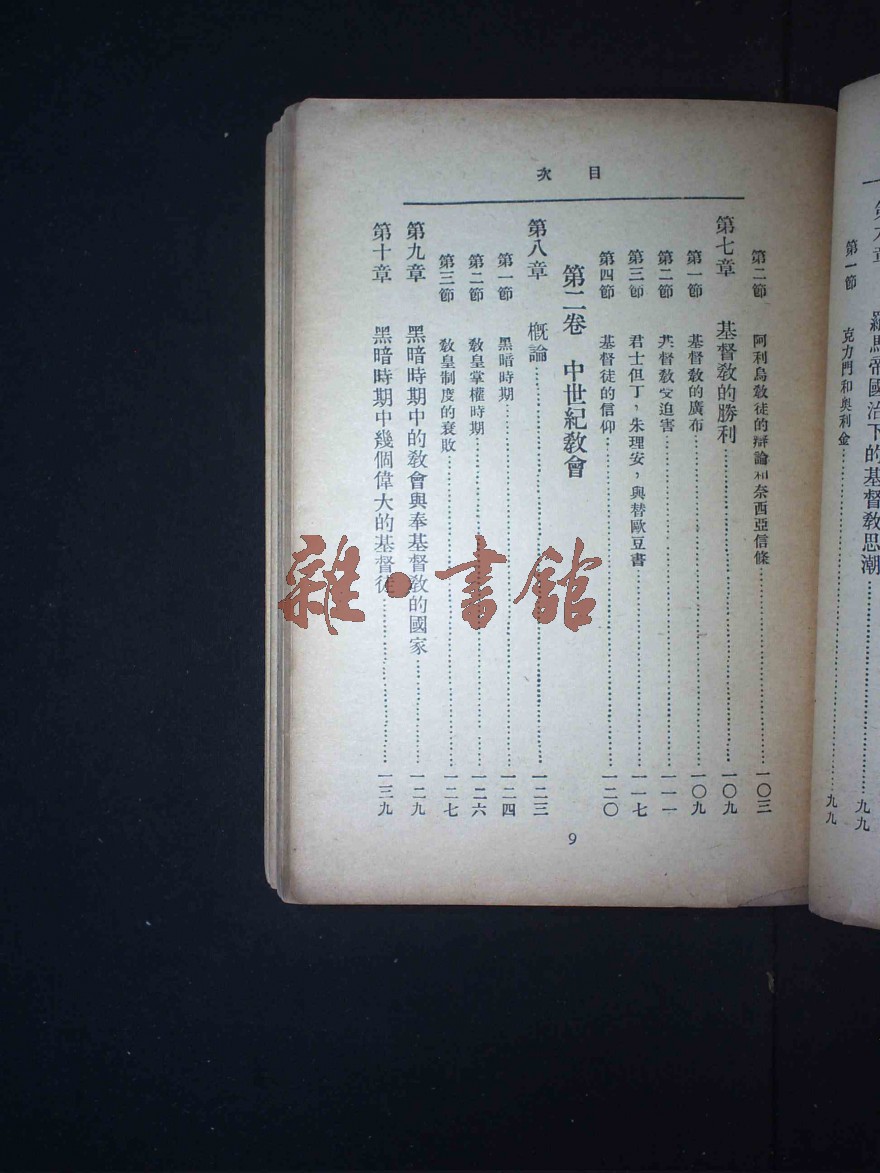 第六章　羅馬帝國治下的基督教思潮……九九
第一節　克力門和奧利金……九九
目次
第二節　阿利烏教徒的辯論和奈西亞信條……一〇三
第七章　基督教的勝利……一〇九
第一節　基督教的廣布……一〇九
第二節　基督教受迫害……一一一
第三節　君士但丁，朱理安，與替歐豆書……一一七
第四節　基督徒的信仰……一二〇
第二卷　中世紀教會
第八章　概論……一二三
第一節　黑暗時期……一二四
第二節　教皇掌權時期……一二六
第三節　教皇制度的衰敗……一二七
第九章　黑暗時期中的教會與奉基督教的國家……一二九
第十章　黑暗時期中幾個偉大的基督徒……一三九
9
雜·書館